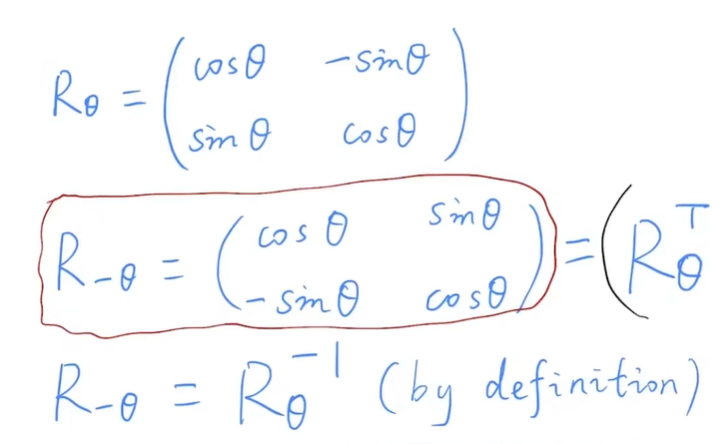 R_θ = ( cosθ  -sinθ
sinθ  cosθ )
R_{-θ} = ( cosθ  sinθ
-sinθ  cosθ ) = ( R_θ^T
R_{-θ} = R_θ^{-1} (by definition)